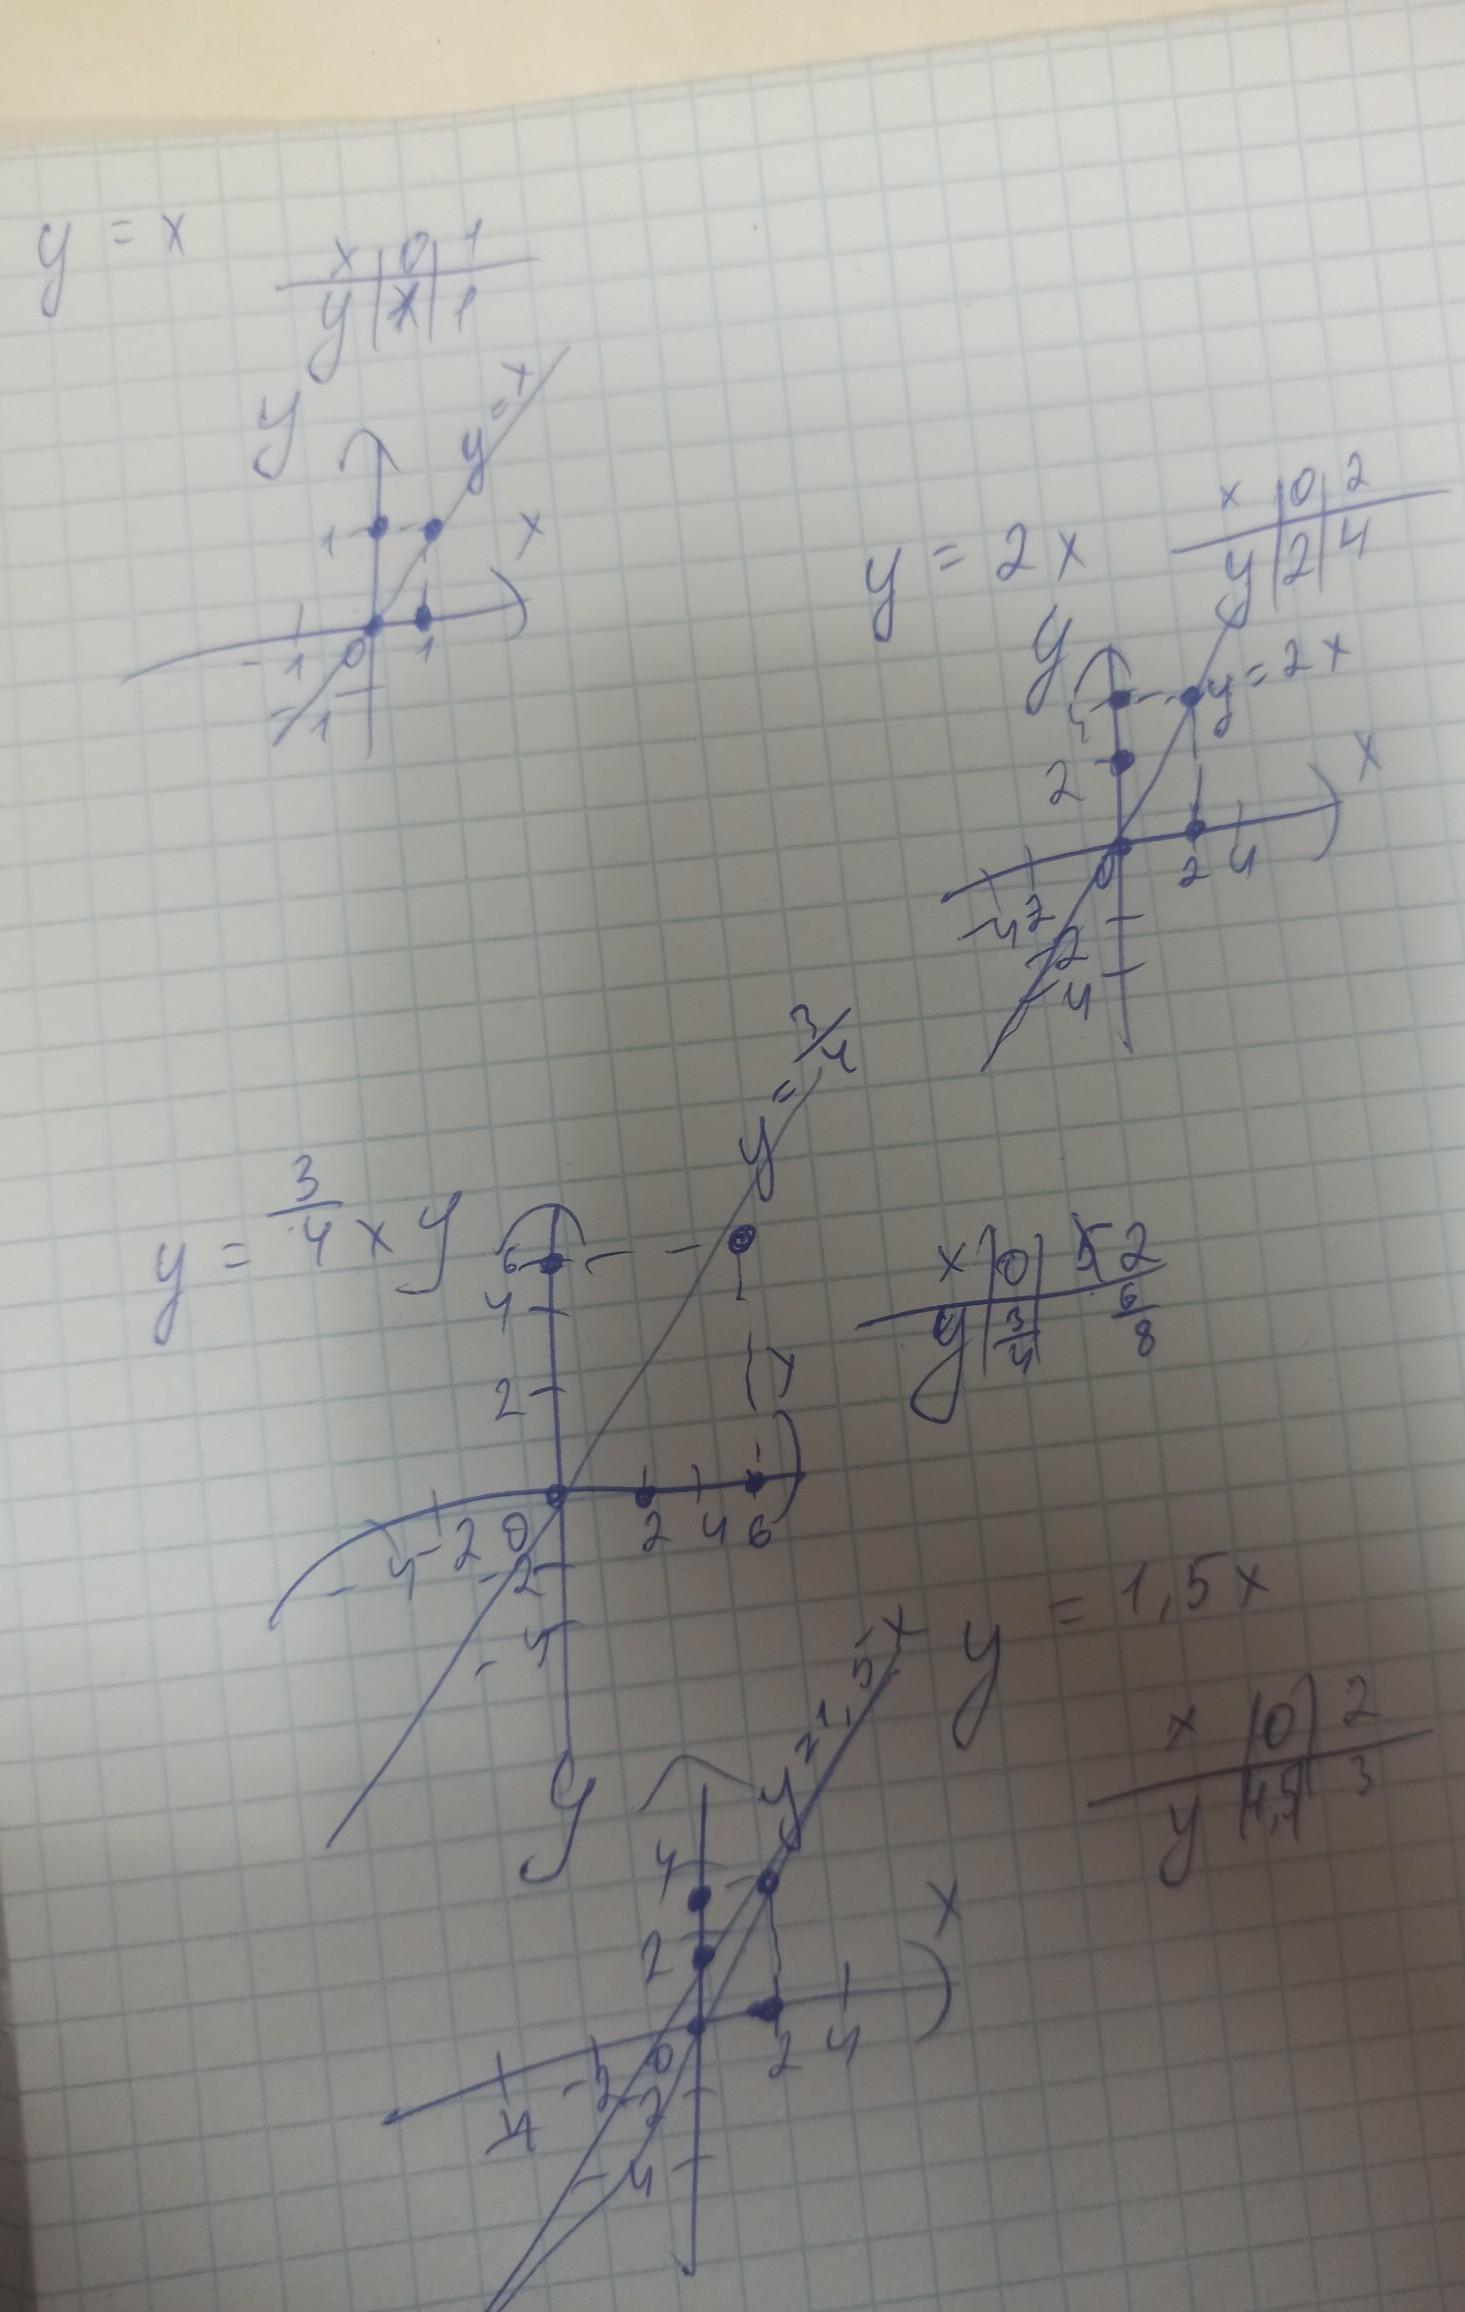 y = x
x | 0 | 1
y | x | 1
y
y = x
1
x
-1 0 1
-1
y = 2x
x | 0 | 2
y | 2 | 4
y
y = 2x
4
2
x
-4 -2 0 2 4
-2
-4
y = 3/4 x
y
y = 3/4
6
4
2
x
-4 -2 0 2 4 6
-2
-4
x | 0 | 2
y | 3/4 | 6/8
y = 1,5x
x | 0 | 2
y | 1,5 | 3
y
y = 1,5x
4
2
x
-4 -2 0 2 4
-2
-4